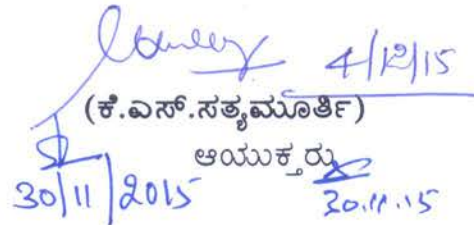 4/12/15
(ಕೆ.ಎಸ್.ಸತ್ಯಮೂರ್ತಿ)
ಆಯುಕ್ತರು
30/11/2015
30.11.15